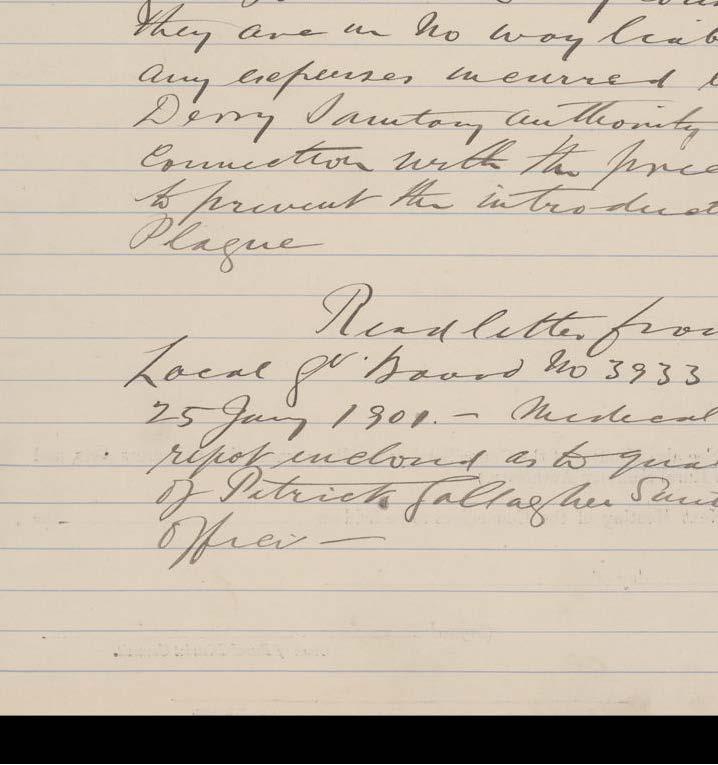 they are in no way liab
any expenses incurred
Derry Sanitary Authority
Connection with the prec
to prevent the introduct
Plague
Read letter from
Local Gv. Board No 3933
25 Jany 1901. — Medical
repot enclosed as to qua
of Patrick Gallagher Sani
Officer —